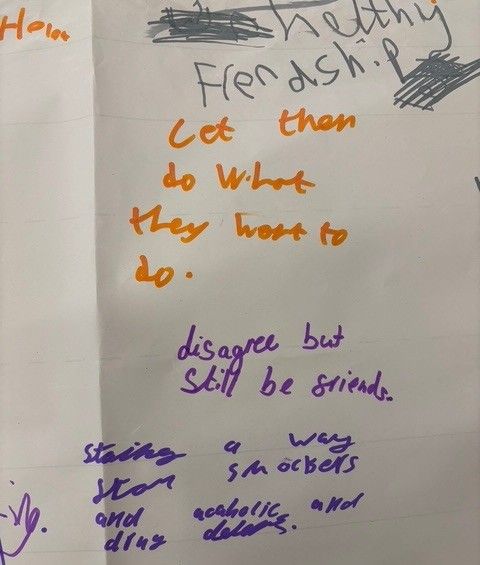 healthy
Friendship
Let them
do What
they want to
do.
disagree but
Still be griends.
staing a way
srom smockers
and acaholic and
drug delars.